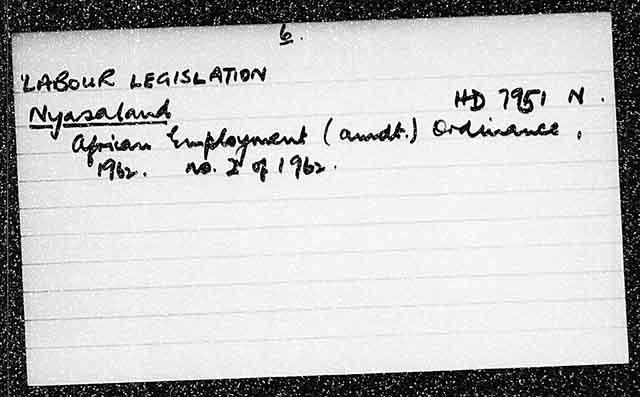 6.
LABOUR LEGISLATION
Nyasaland HD 7951 N.
African Employment (amdt.) Ordinance,
1962. no. 2 of 1962.